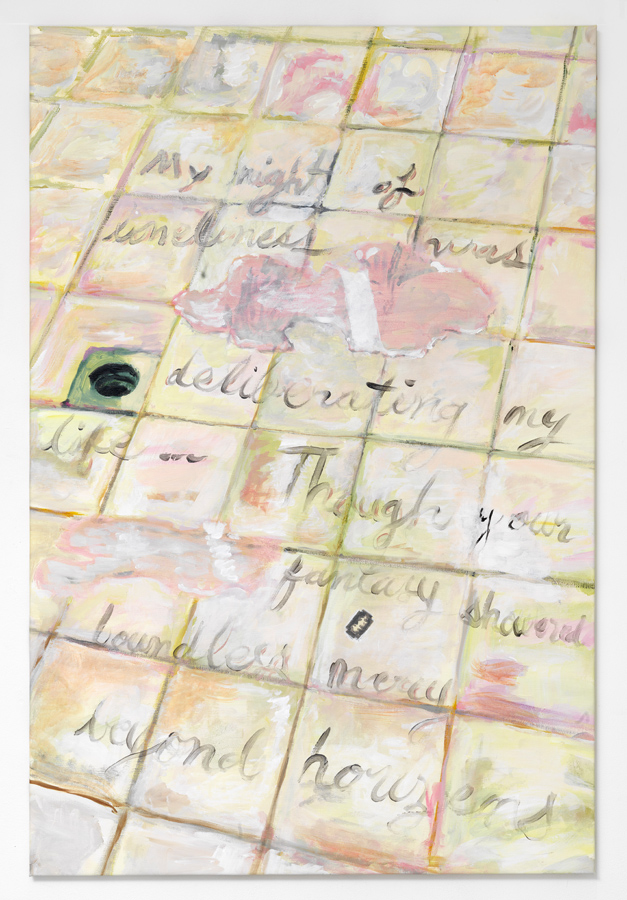 My night of
loneliness was
deliberating my
life — Though your
fantasy showered
boundless mercy
beyond horizens